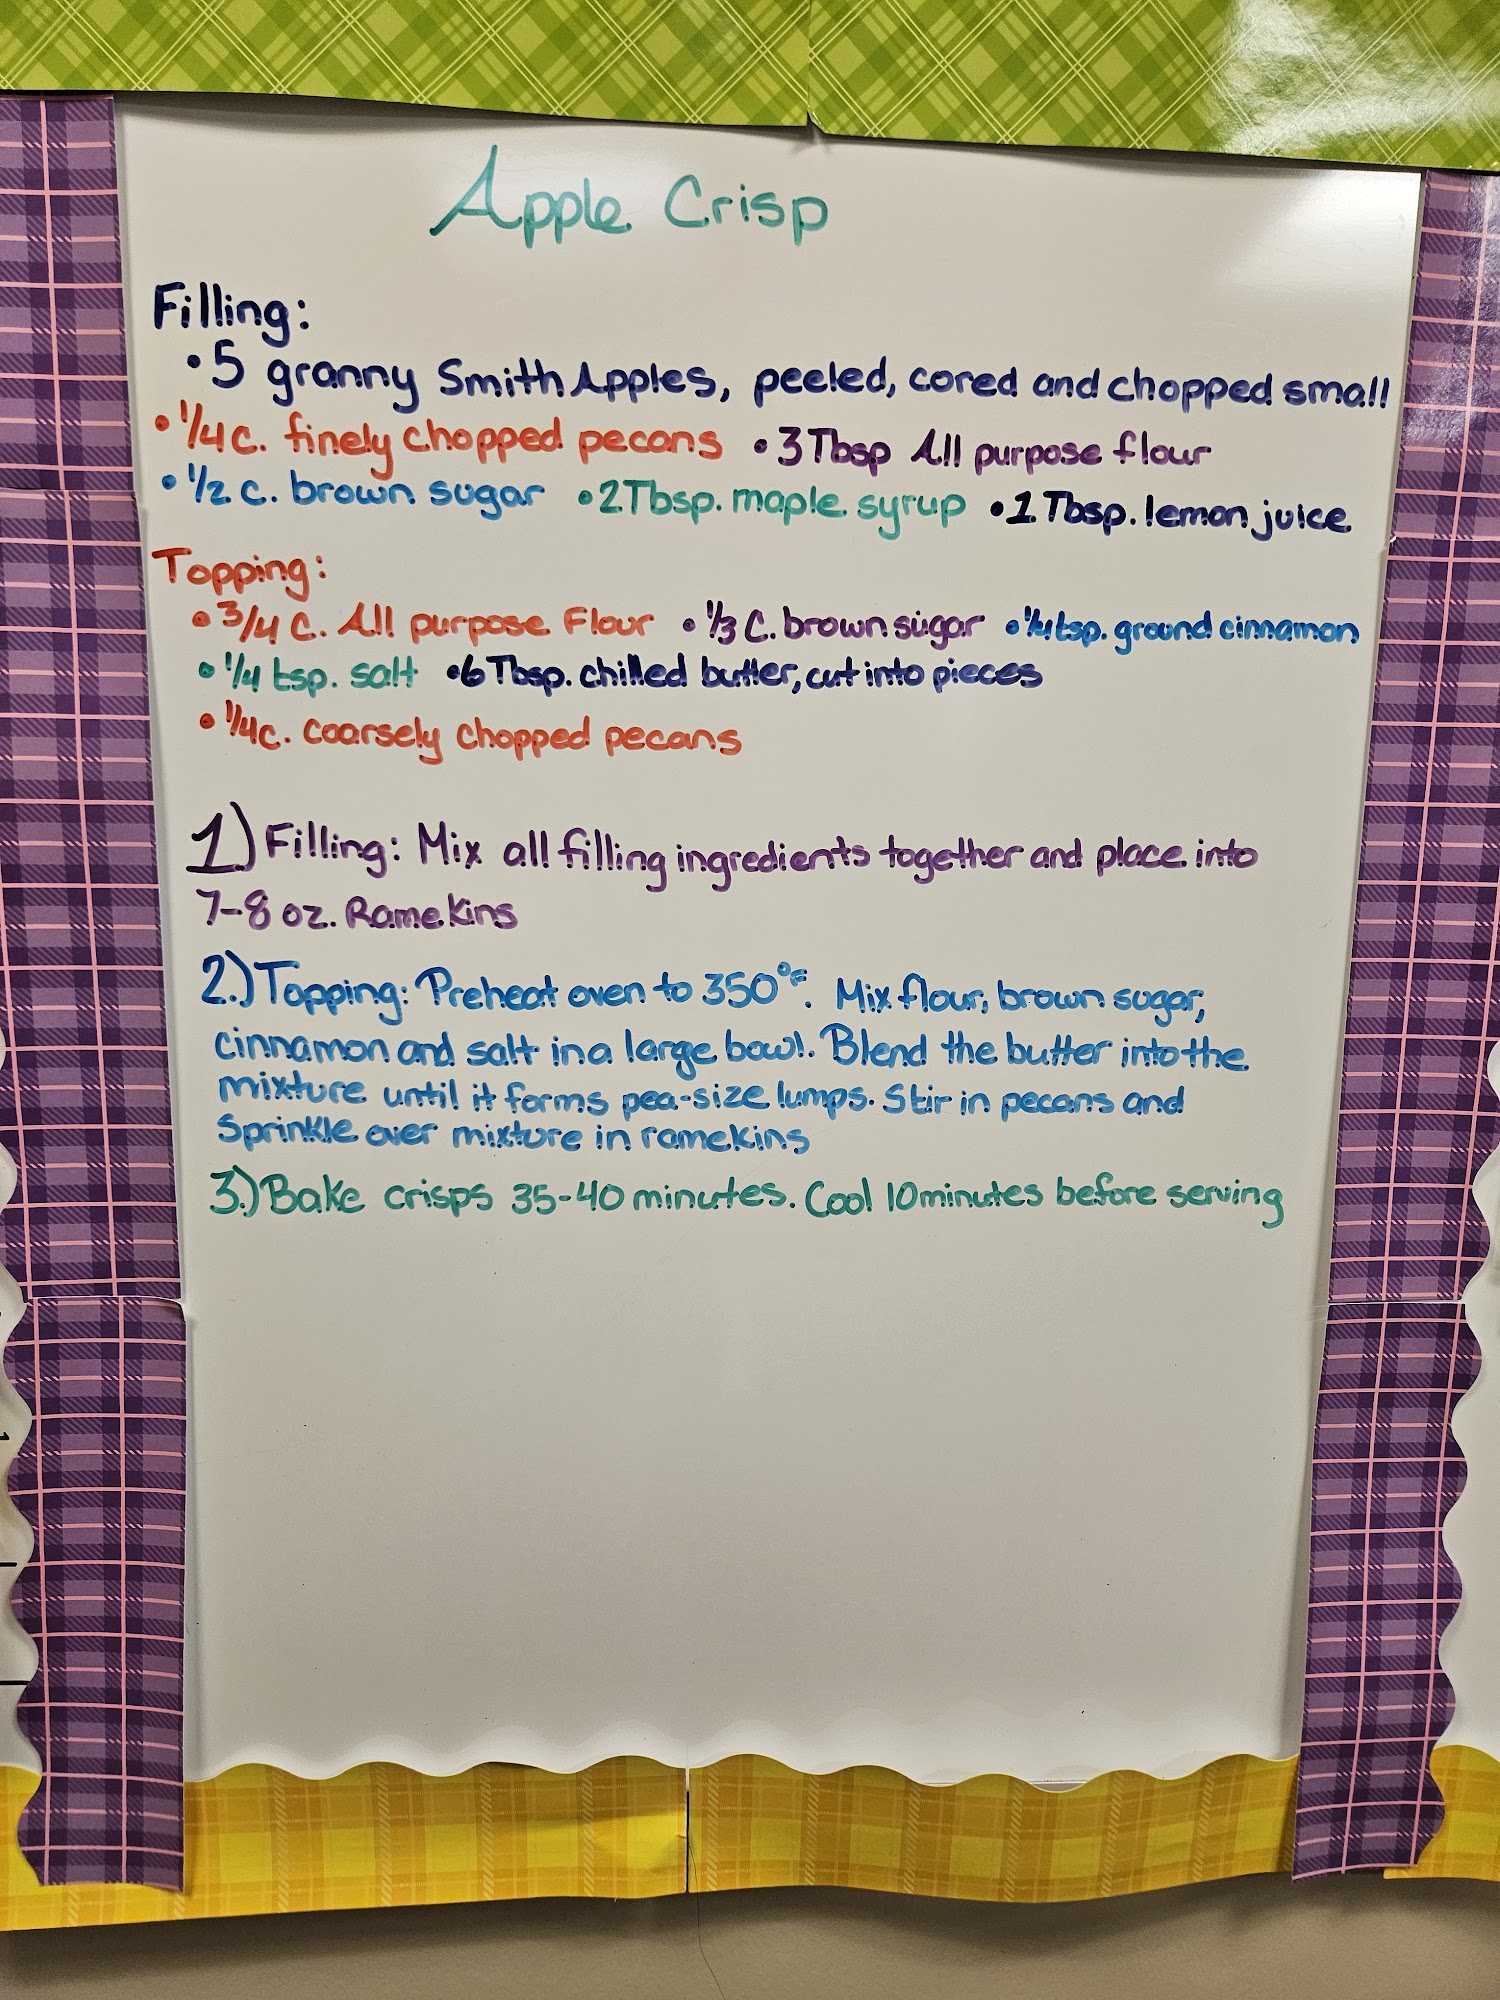 Apple Crisp
Filling:
•5 granny Smith Apples, peeled, cored and chopped small
•1/4 c. finely chopped pecans •3 Tbsp All purpose flour
•1/2 c. brown sugar •2 Tbsp. maple syrup •1 Tbsp. lemon juice
Topping:
•3/4 C. All purpose Flour •1/3 C. brown sugar •1/4 tsp. ground cinnamon
•1/4 tsp. salt •6 Tbsp. chilled butter, cut into pieces
•1/4 c. coarsely chopped pecans
1.) Filling: Mix all filling ingredients together and place into
7-8 oz. Ramekins
2.) Topping: Preheat oven to 350°F. Mix flour, brown sugar,
cinnamon and salt in a large bowl. Blend the butter into the
mixture until it forms pea-size lumps. Stir in pecans and
Sprinkle over mixture in ramekins
3.) Bake crisps 35-40 minutes. Cool 10 minutes before serving